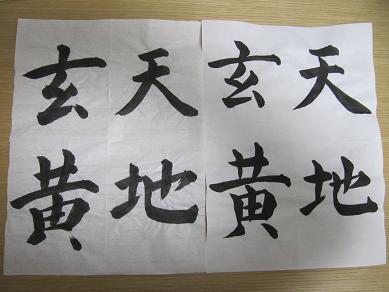 天地
玄黄
天地
玄黄